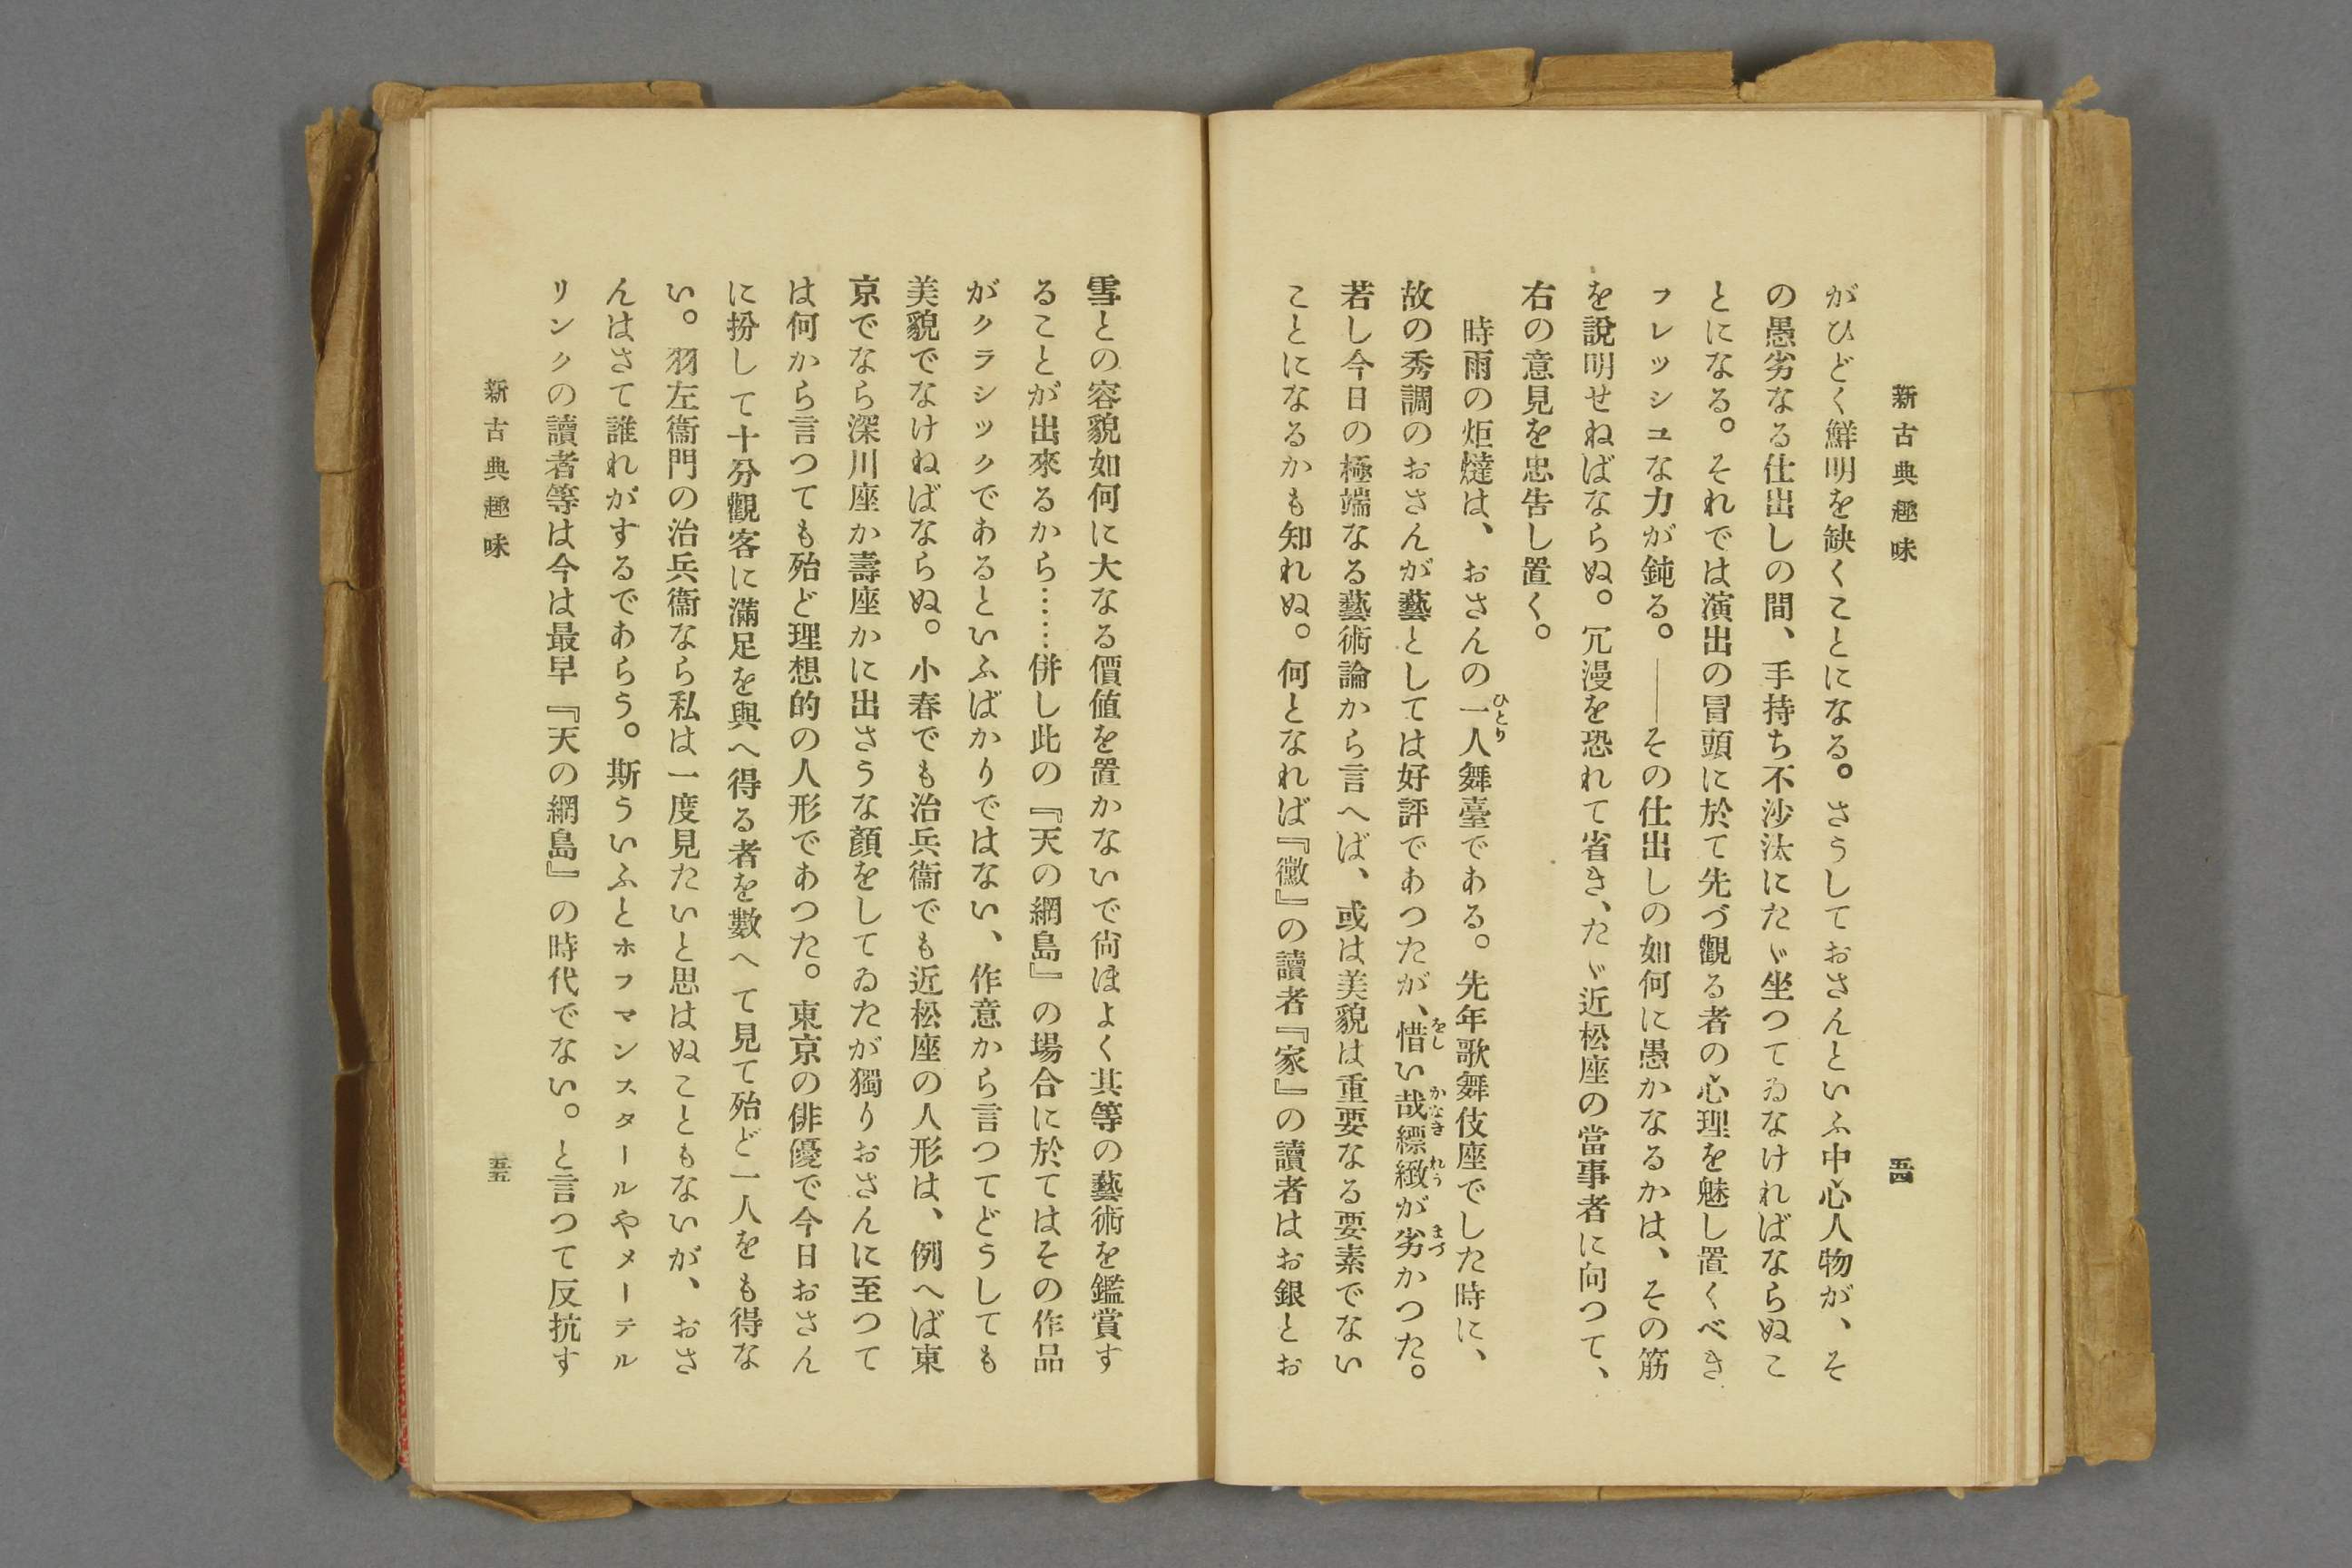 新古典趣味
五四
がひどく鮮明を缺くことになる。さうしておさんといふ中心人物が、そ
の愚劣なる仕出しの間、手持ち不沙汰にたゞ坐つてゐなければならぬこ
とになる。それでは演出の冒頭に於て先づ觀る者の心理を魅し置くべき
フレッシユな力が鈍る。――その仕出しの如何に愚かなるかは、その筋
を說明せねばならぬ。冗漫を恐れて省き、たゞ近松座の當事者に向つて、
右の意見を忠告し置く。
時雨の炬燵は、おさんの一人舞臺である。先年歌舞伎座でした時に、
故の秀調のおさんが藝としては好評であつたが、惜い哉縹緻が劣かつた。
若し今日の極端なる藝術論から言へば、或は美貌は重要なる要素でない
ことになるかも知れぬ。何となれば『黴』の讀者『家』の讀者はお銀とお
雪との容貌如何に大なる價値を置かないで尙ほよく其等の藝術を鑑賞す
ることが出來るから……併し此の『天の網島』の場合に於てはその作品
がクラシックであるといふばかりではない、作意から言つてどうしても
美貌でなけねばならぬ。小春でも治兵衞でも近松座の人形は、例へば東
京でなら深川座か壽座かに出さうな顏をしてゐたが獨りおさんに至つて
は何から言つても殆ど理想的の人形であつた。東京の俳優で今日おさん
に扮して十分觀客に滿足を與へ得る者を數へて見て殆ど一人をも得な
い。羽左衞門の治兵衞なら私は一度見たいと思はぬこともないが、おさ
んはさて誰れがするであらう。斯ういふとホフマンスタールやメーテル
リンクの讀者等は今は最早『天の網島』の時代でない。と言つて反抗す
新古典趣味
五五